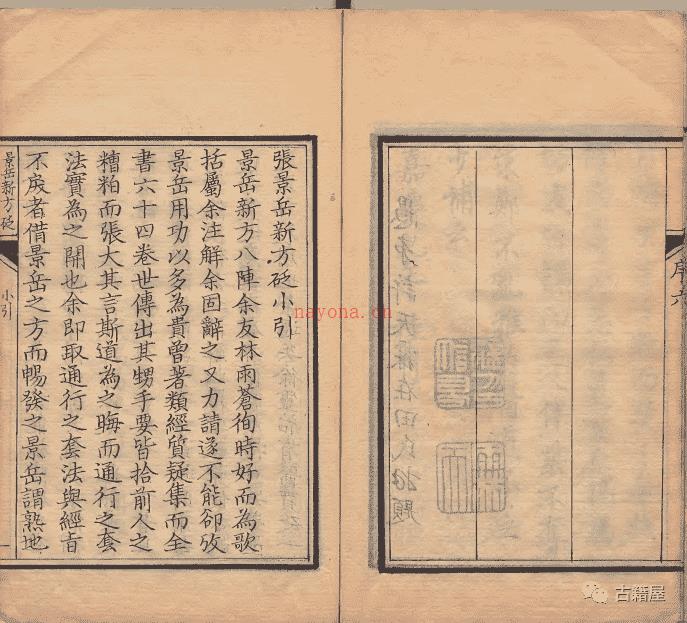 序六
張景岳新方砭小引
景岳新方八陣余友林雨蒼徇時好而為歌
括屬余注解余固辭之又力請遂不能卻攷
景岳用功以多為貴曾著類經質疑集而全
書六十四卷世傳出其甥手要皆拾前人之
糟粕而張大其言斯道為之晦而通行之套
法實為之開也余即取通行之套法與經旨
不戾者借景岳之方而暢發之景岳謂熟地
景岳新方砭
小引
一
nayona.cn
古籍屋